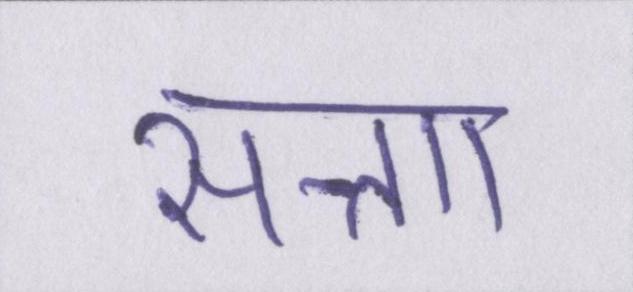 सत्ता